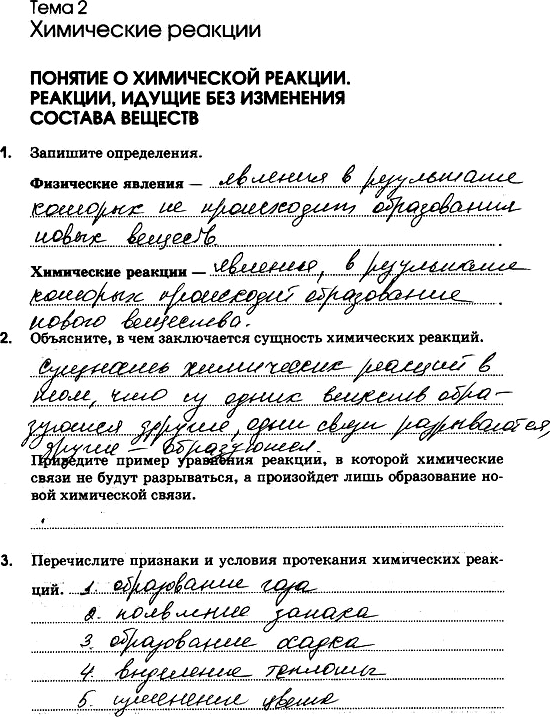 Тема 2
Химические реакции
ПОНЯТИЕ О ХИМИЧЕСКОЙ РЕАКЦИИ.
РЕАКЦИИ, ИДУЩИЕ БЕЗ ИЗМЕНЕНИЯ
СОСТАВА ВЕЩЕСТВ
1. Запишите определения.
Физические явления — явления в результате
которых не происходит образовании
новых веществ.
Химические реакции — явления, в результате
которых происходит образование
нового вещества.
2. Объясните, в чем заключается сущность химических реакций.
Сущность химических реакций в
том, что из одних веществ обра-
зуются другие, одни связи разрываются,
другие — образуются.
Приведите пример уравнения реакции, в которой химические
связи не будут разрываться, а произойдет лишь образование но-
вой химической связи.
3. Перечислите признаки и условия протекания химических реак-
ций. 1. образование газа
2. появление запаха
3. образование осадка
4. выделение теплоты
5. изменение цвета